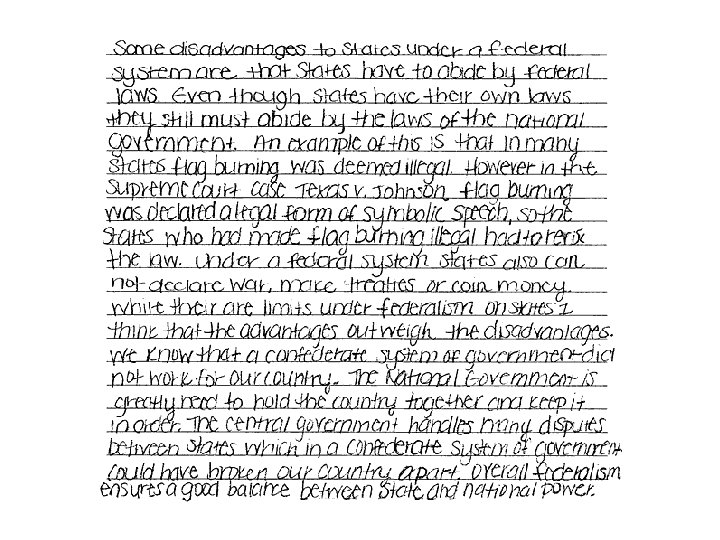 Some disadvantages to States under a federal
system are that States have to abide by federal
laws. Even though states have their own laws
they still must abide by the laws of the national
government. An example of this is that in many
states flag burning was deemed illegal. However in the
Supreme Court case Texas v. Johnson, flag burning
was declared a legal form of symbolic speech, so the
States who had made flag burning illegal had to revise
the law. Under a federal system states also can
not declare war, make treaties or coin money.
While their are limits under federalism on states I
think that the advantages outweigh the disadvantages.
We know that a confederate system of government did
not work for our country. The National Government is
greatly need to hold the country together and keep it
in order. The central government handles many disputes
between states which in a confederate system of government
could have broken our country apart. Overall federalism
ensures a good balance between State and national power.